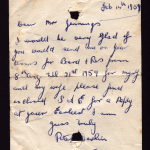 Feb 14th 1959
Dear Mr Jennings
I would be very glad if
you would send me or your
terms for Board & Res from
8th Aug till 21st 1959 for myself
and my wife please find
enclosed S.A.E for a Reply
at your Earliest
yours truly
Peter